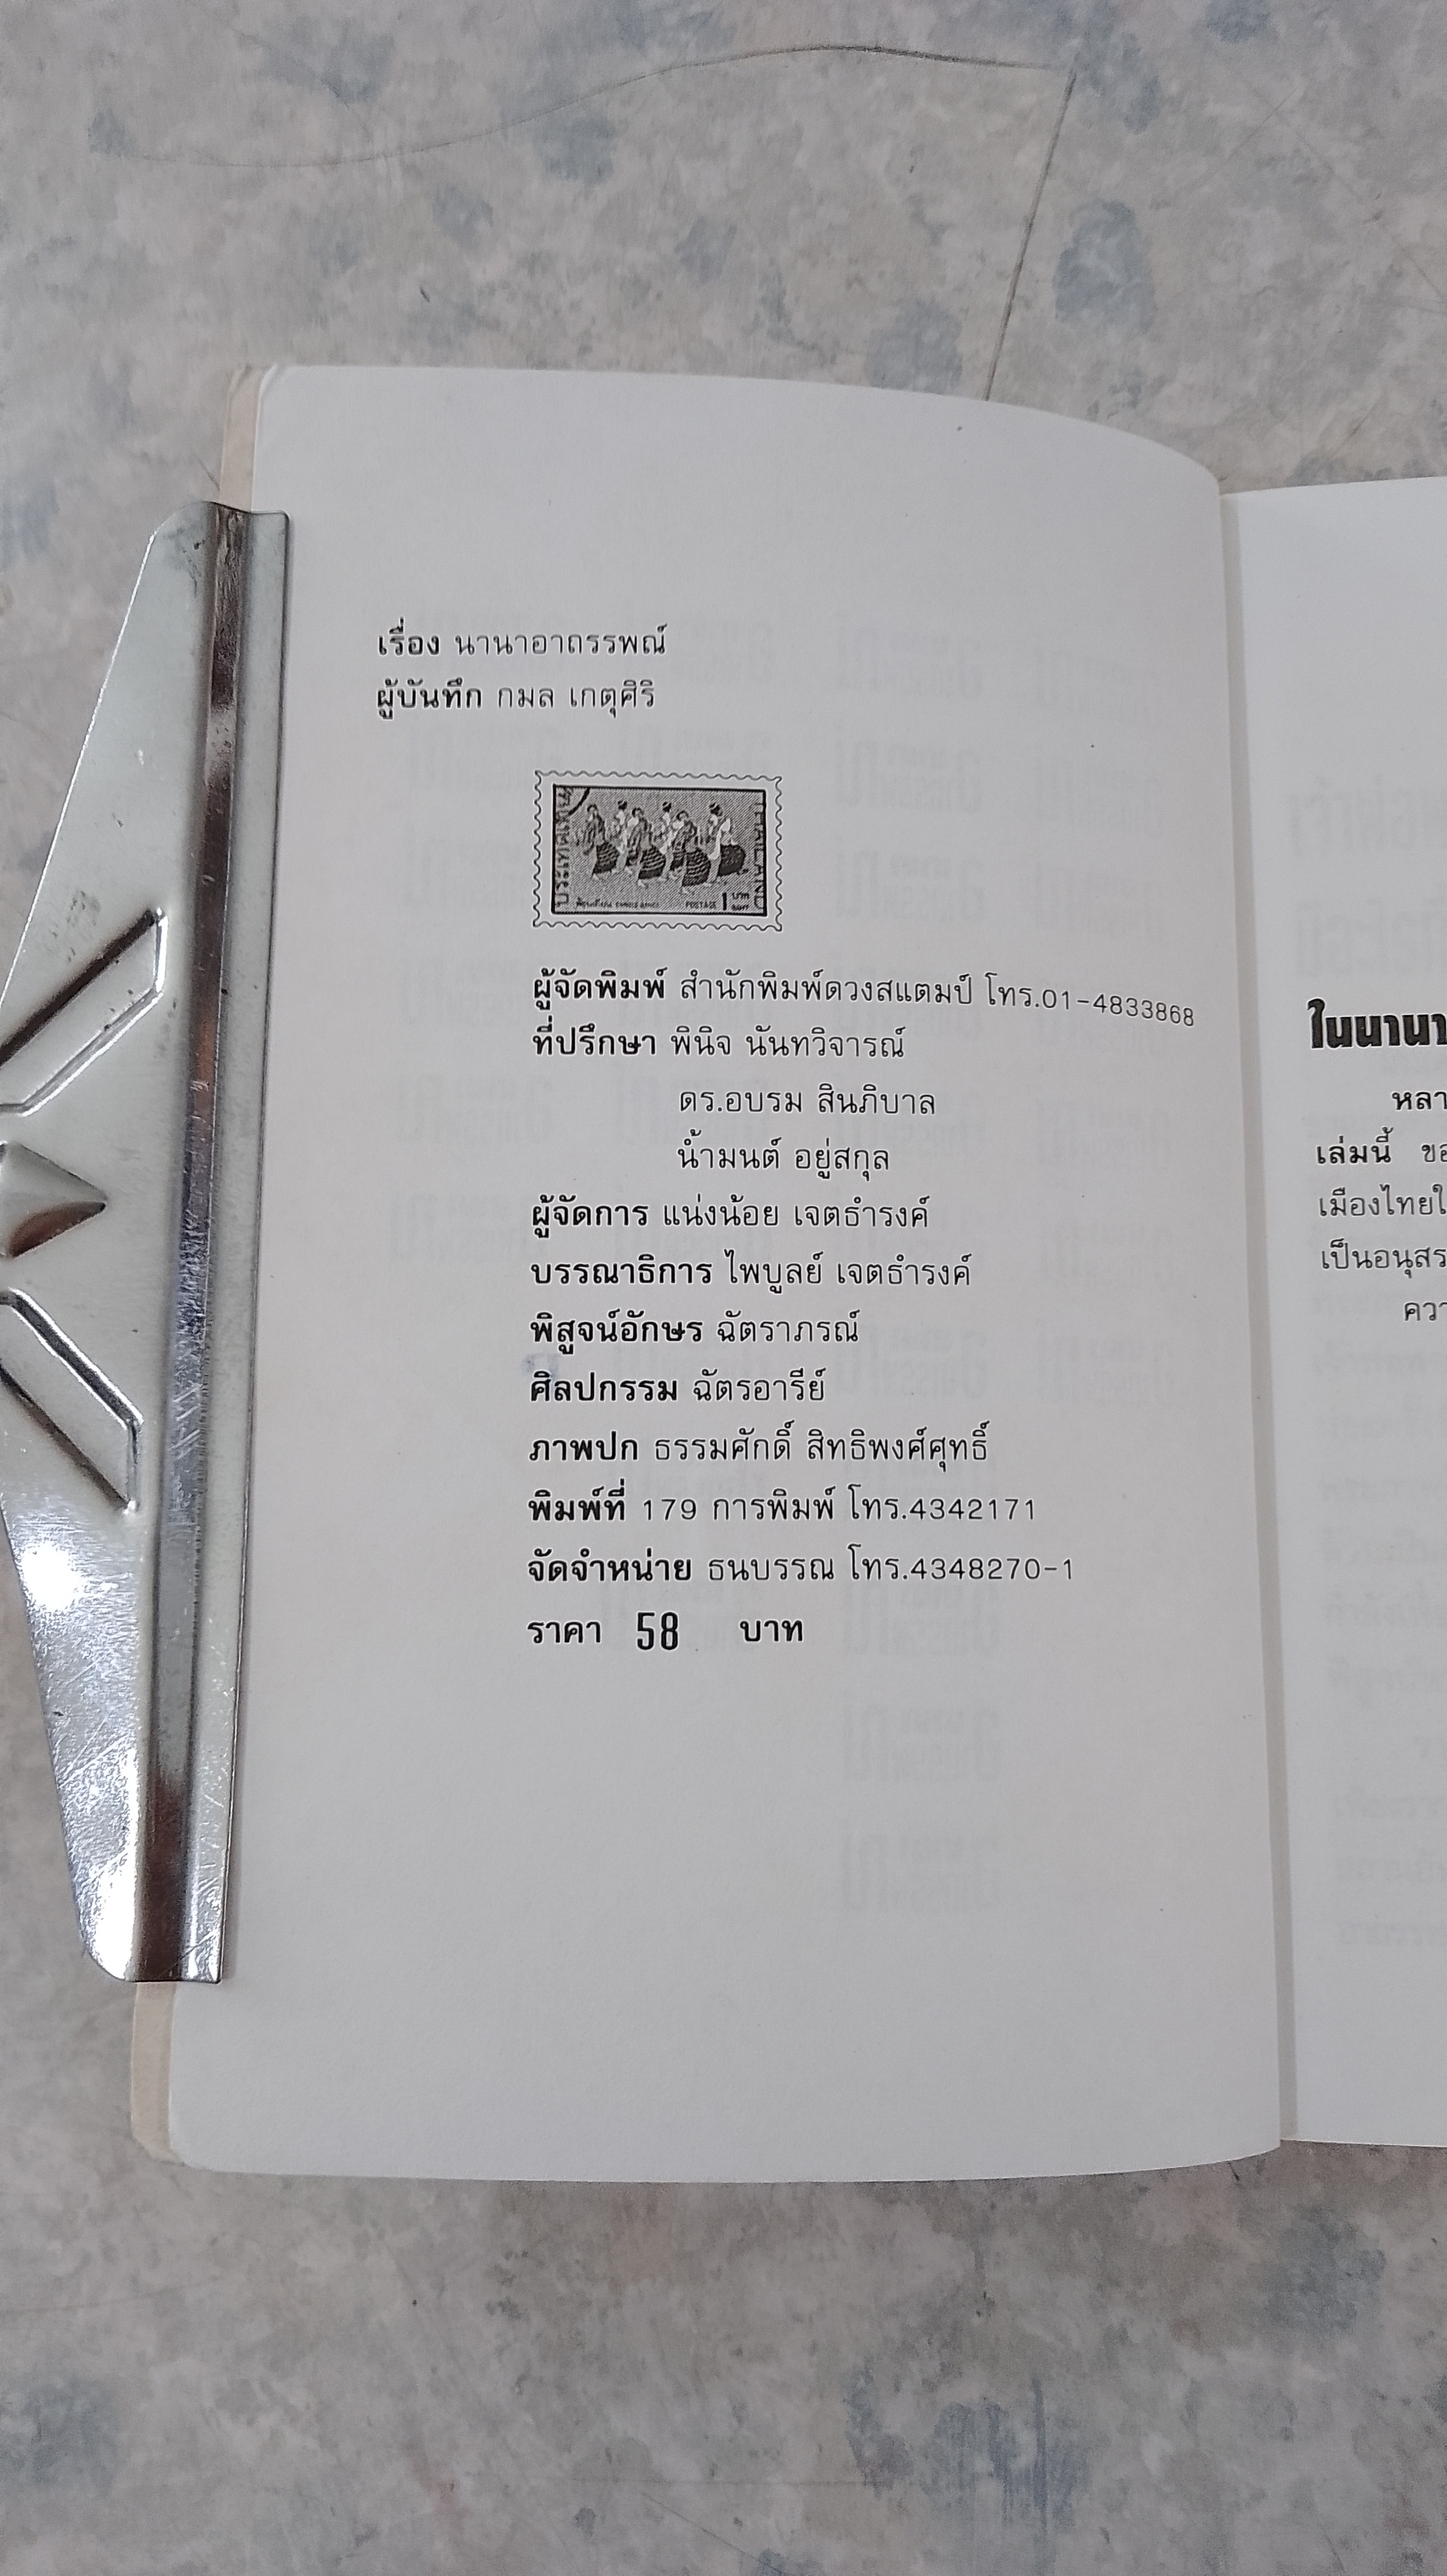 เรื่อง นานาอาถรรพณ์
ผู้บันทึก กมล เกตุศิริ
ประเทศไทย
THAILAND
POSTAGE 1 บาท
ผู้จัดพิมพ์ สำนักพิมพ์ดวงสแตมป์ โทร.01-4833868
ที่ปรึกษา พินิจ นันทวิจารณ์
ดร.อบรม สินภิบาล
น้ำมนต์ อยู่สกุล
ผู้จัดการ แน่งน้อย เจตธำรงค์
บรรณาธิการ ไพบูลย์ เจตธำรงค์
พิสูจน์อักษร ฉัตราภรณ์
ศิลปกรรม ฉัตรอารีย์
ภาพปก ธรรมศักดิ์ สิทธิพงศ์ศุทธิ์
พิมพ์ที่ 179 การพิมพ์ โทร.4342171
จัดจำหน่าย ธนบรรณ โทร.4348270-1
ราคา 58 บาท
ในนานา
หลา
เล่มนี้ ขอ
เมืองไทยใ
เป็นอนุสร
ควา